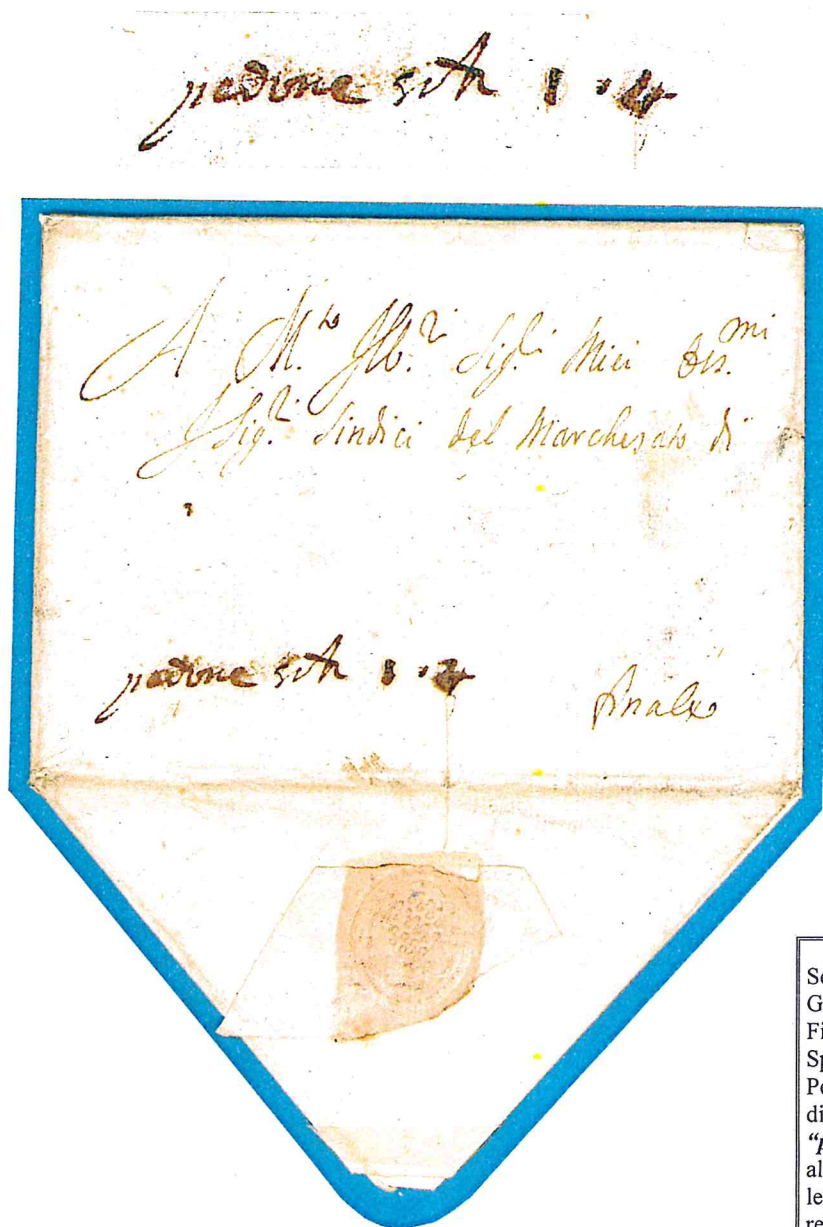 padone
A M.to Ill.ri Sig.ri Miei
Sig.ri Sindici del Marchesato di
padone
Finale
So
G
Fi
Sp
Po
di
“p
al
le
re